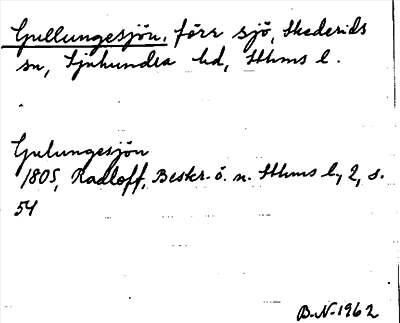 Gullungesjön, förr sjö, Skederids
sn, Sjuhundra hd, Sthms l.
Gulungesjön
1805, Radloff, Beskr. ö. n. Sthms l, 2, s.
54
B.N. 1962